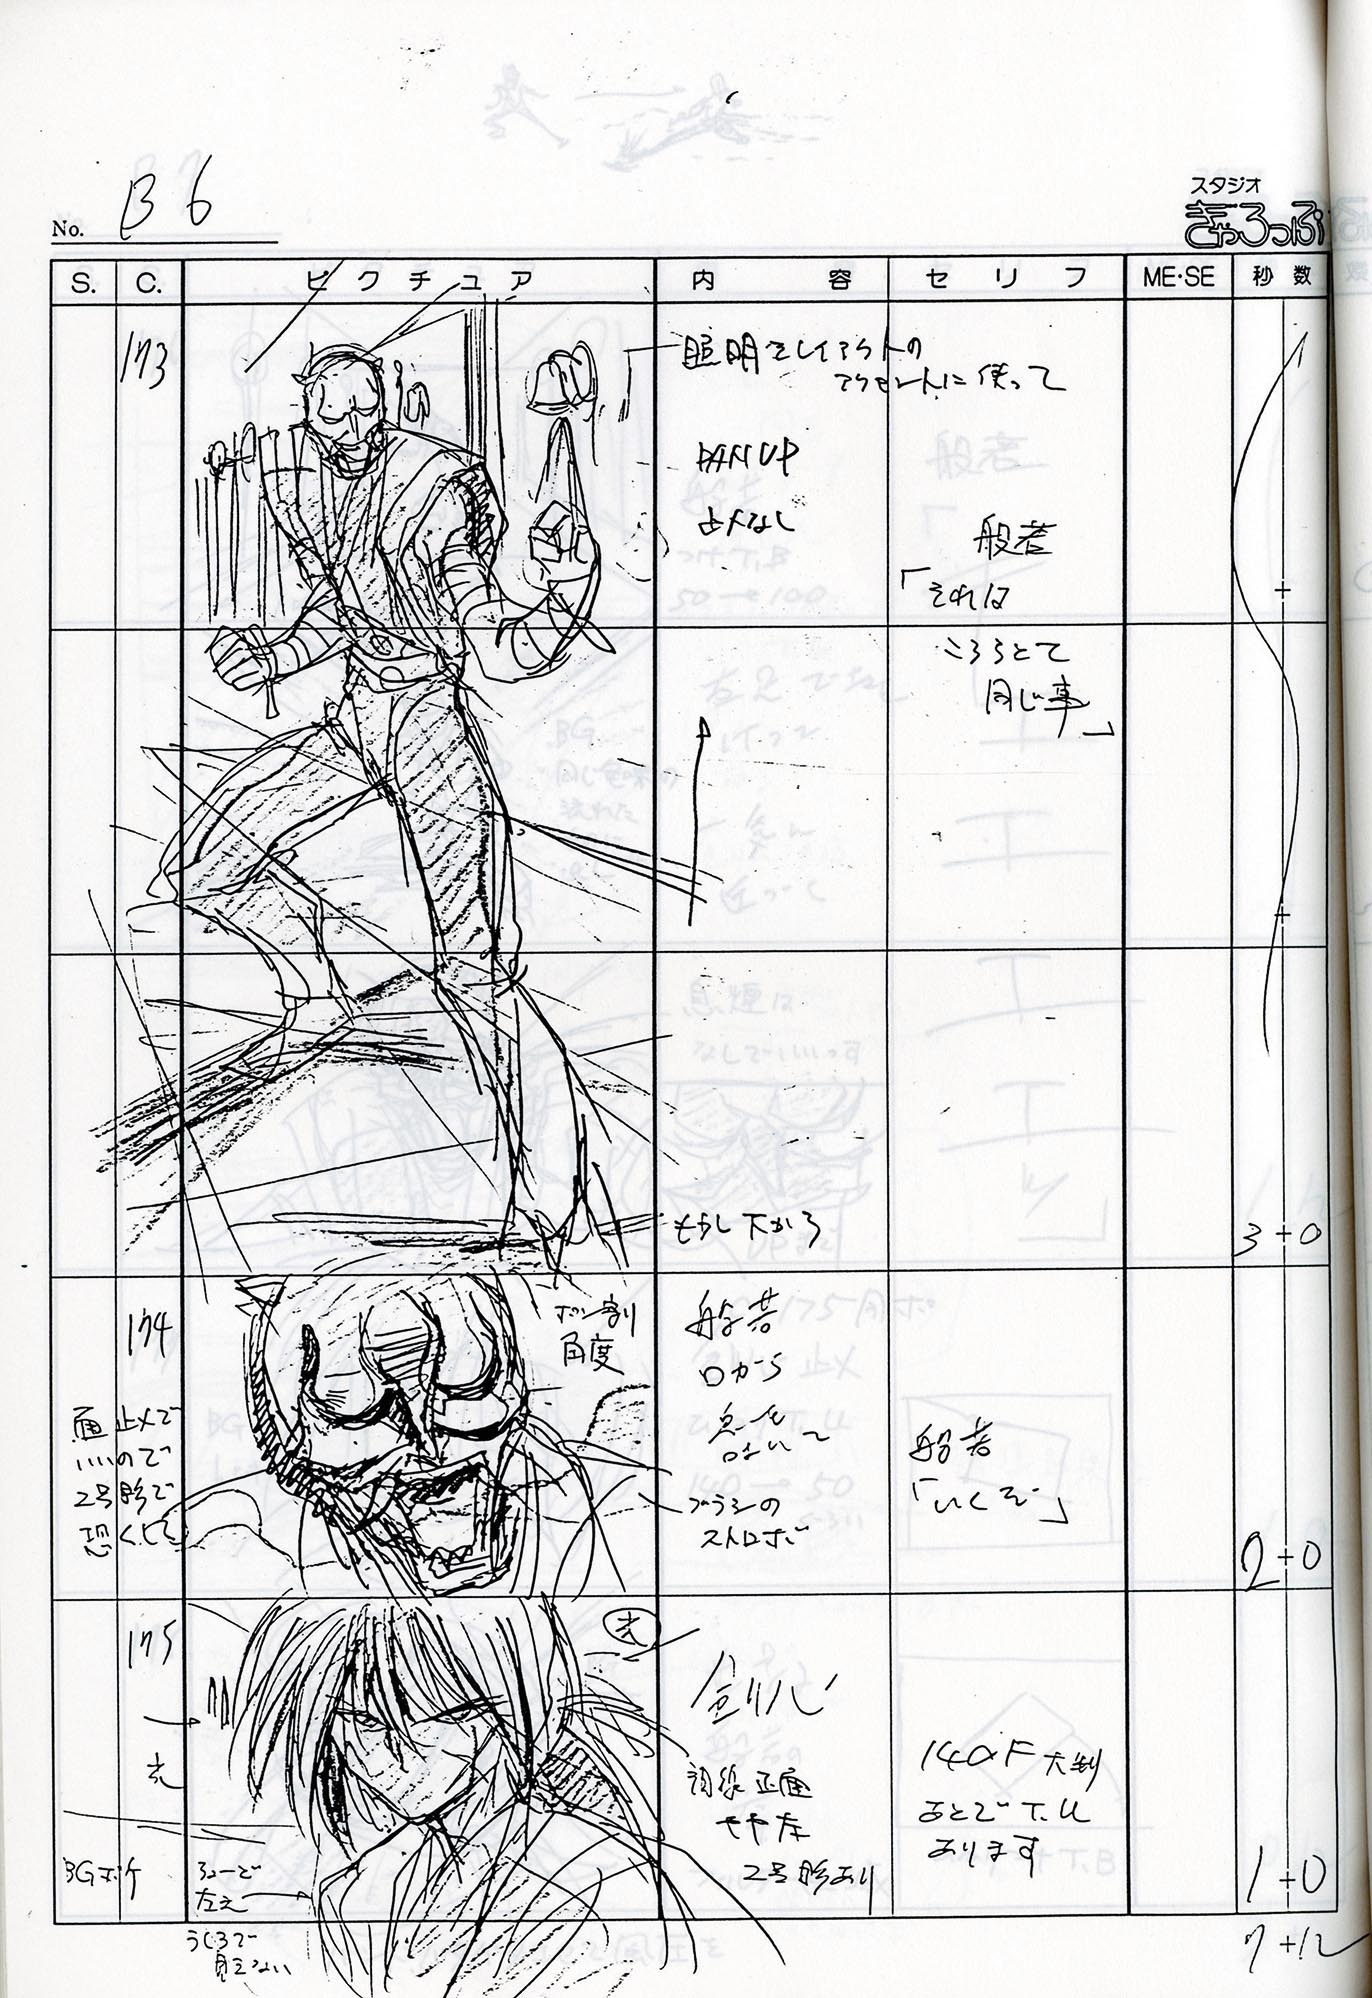 スタジオ
ぎゃろっぷ
No. B6
S. C. ピクチュア 内容 セリフ ME・SE 秒数
173
照明をレイアウトの
アクセントに使って
PAN UP
止メなし
般若
「それは
こちらとて
同じ事」
もう少し下から
3+0
174
角度
面止メで
いいので
2号影で
恐くして
般若
口から
息を
はいて
ブラシの
ストロボ
般若
「いくぞ」
2+0
175
剣心
目線正面
やや左
2号影あり
140F大判
あとでT.U
あります
BGボケ
左え
うしろで
見えない
1+0
7+12